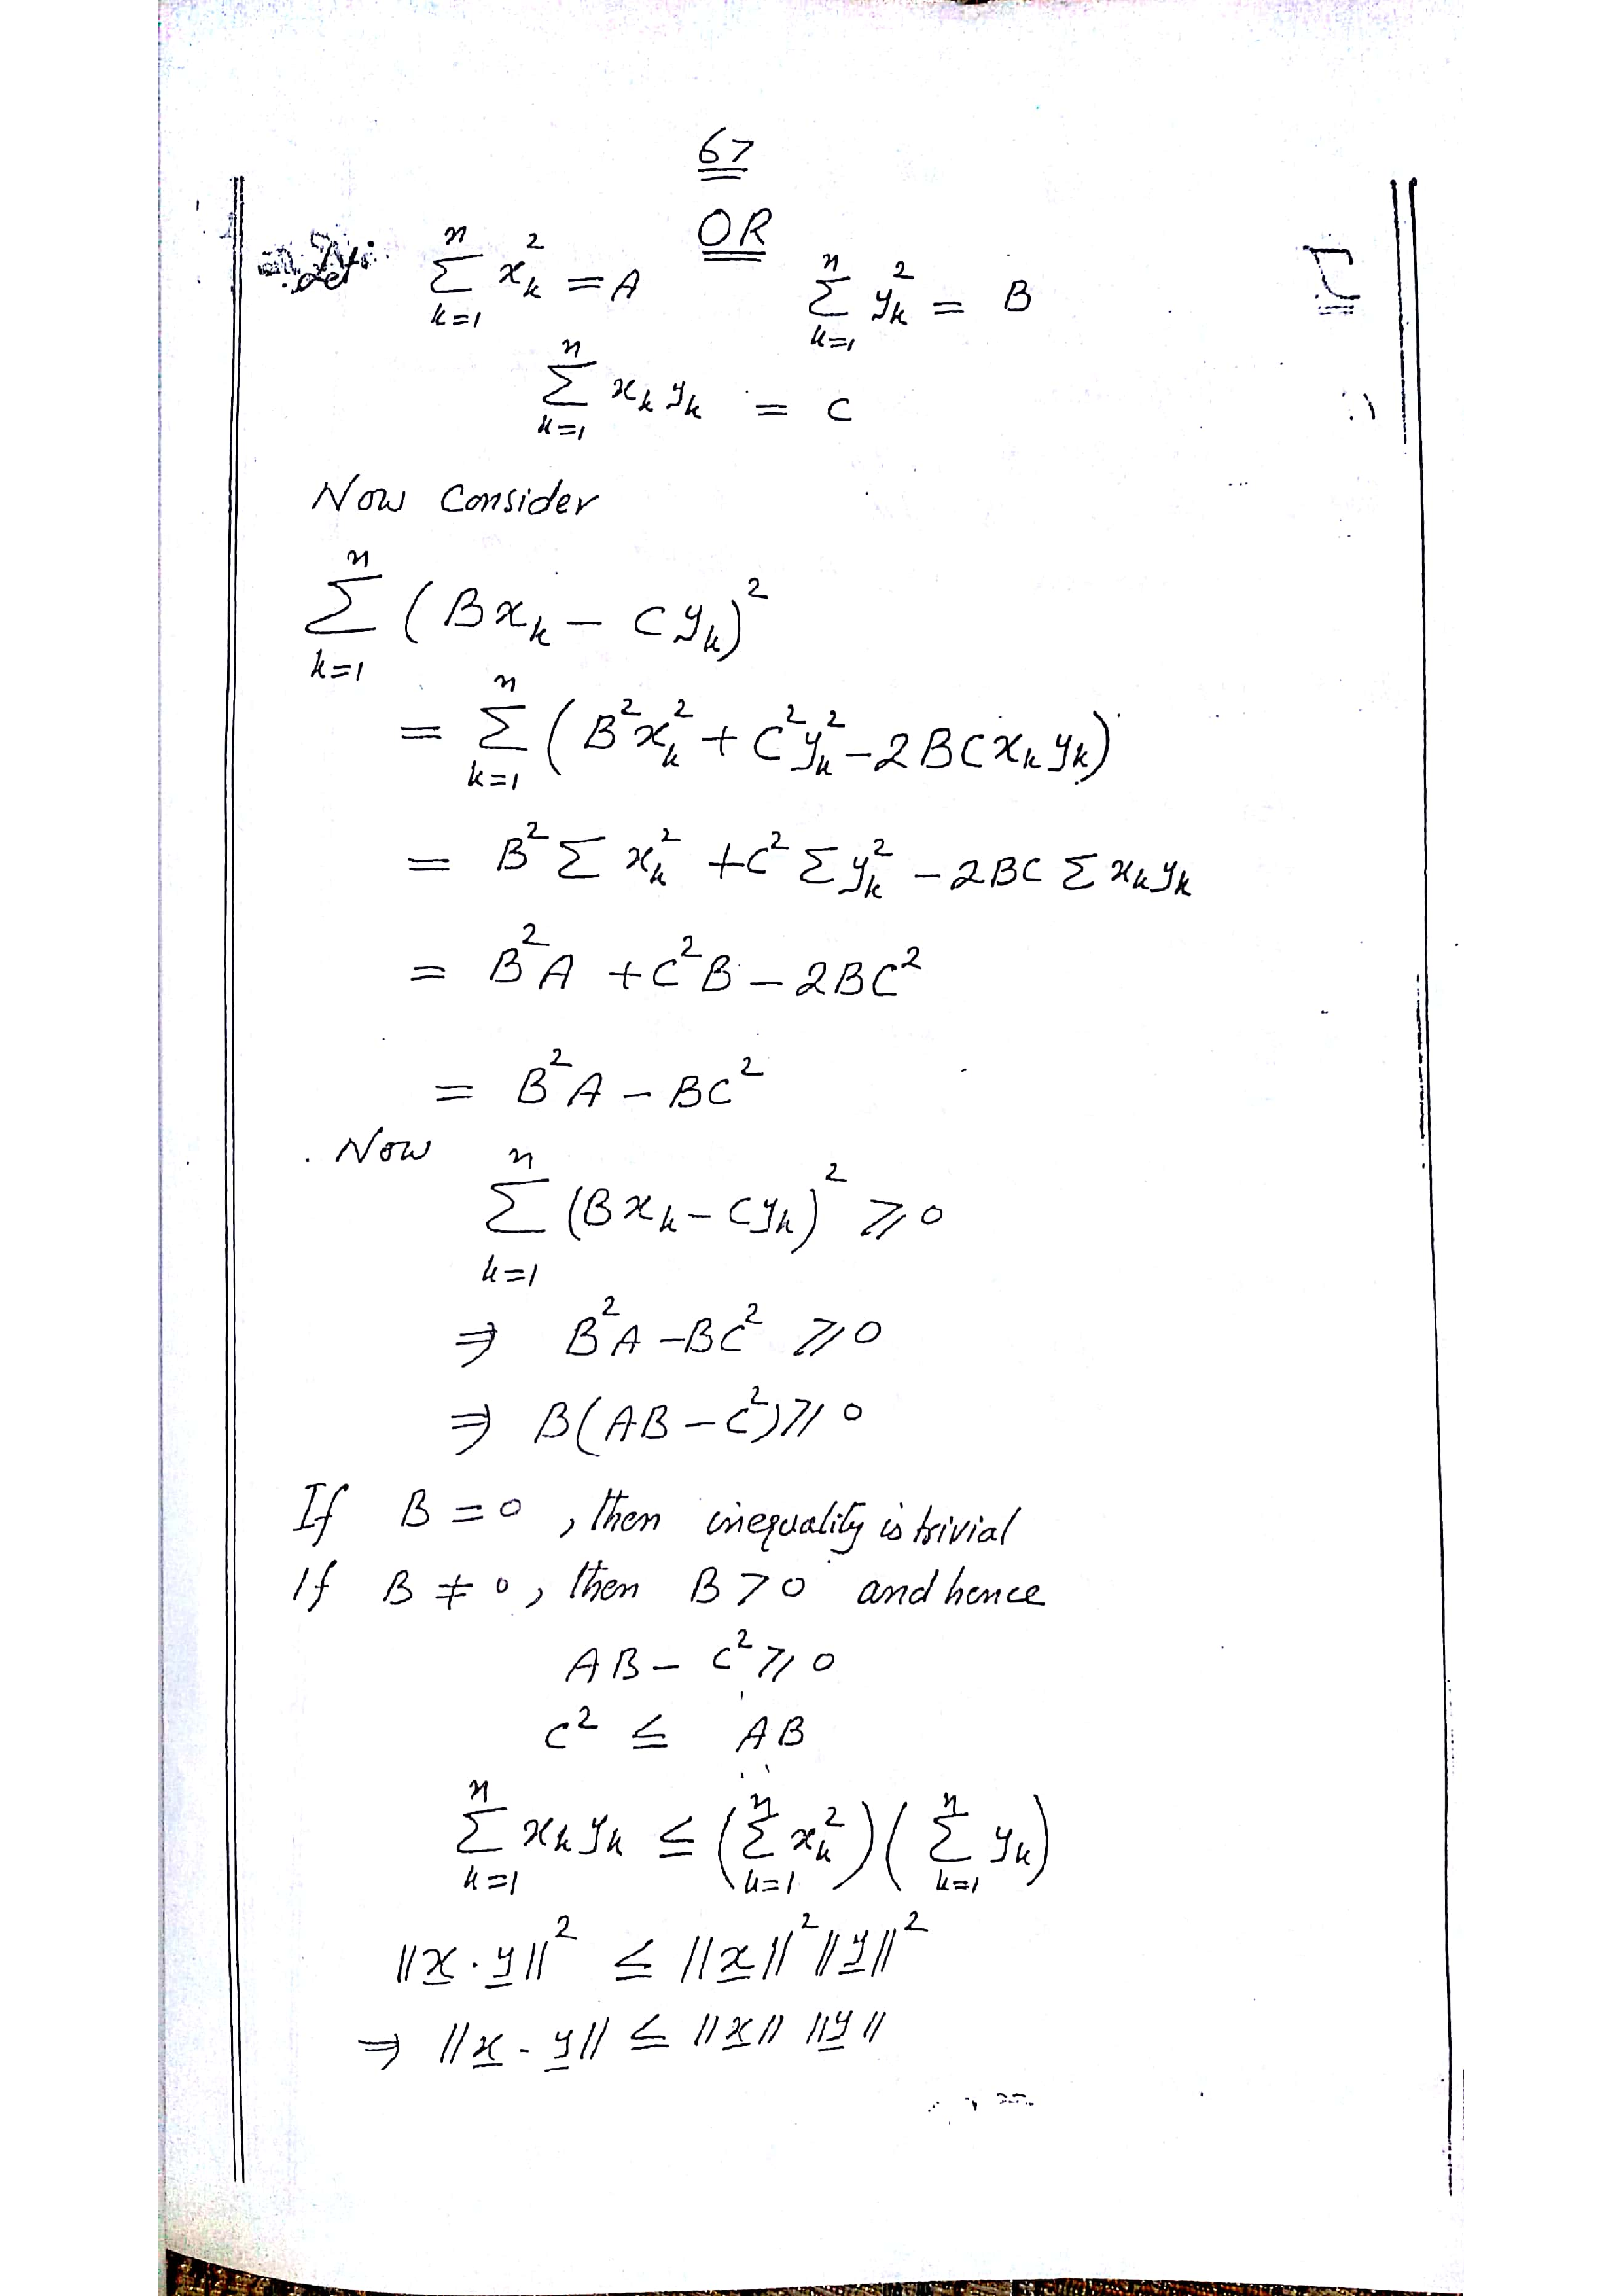 67
OR
Let \sum_{k=1}^{n} x_k^2 = A \sum_{k=1}^{n} y_k^2 = B
\sum_{k=1}^{n} x_k y_k = C
Now Consider
\sum_{k=1}^{n} (Bx_k - Cy_k)^2
= \sum_{k=1}^{n} (B^2 x_k^2 + C^2 y_k^2 - 2BC x_k y_k)
= B^2 \sum x_k^2 + C^2 \sum y_k^2 - 2BC \sum x_k y_k
= B^2 A + C^2 B - 2BC^2
= B^2 A - BC^2
Now
\sum_{k=1}^{n} (Bx_k - Cy_k)^2 ⩾ 0
⇒ B^2 A - BC^2 ⩾ 0
⇒ B(AB - C^2) ⩾ 0
If B = 0, then inequality is trivial
If B ≠ 0, then B > 0 and hence
AB - C^2 ⩾ 0
C^2 ≤ AB
\sum_{k=1}^{n} x_k y_k ≤ (\sum_{k=1}^{n} x_k^2)(\sum_{k=1}^{n} y_k)
||x · y||^2 ≤ ||x||^2 ||y||^2
⇒ ||x · y|| ≤ ||x|| ||y||